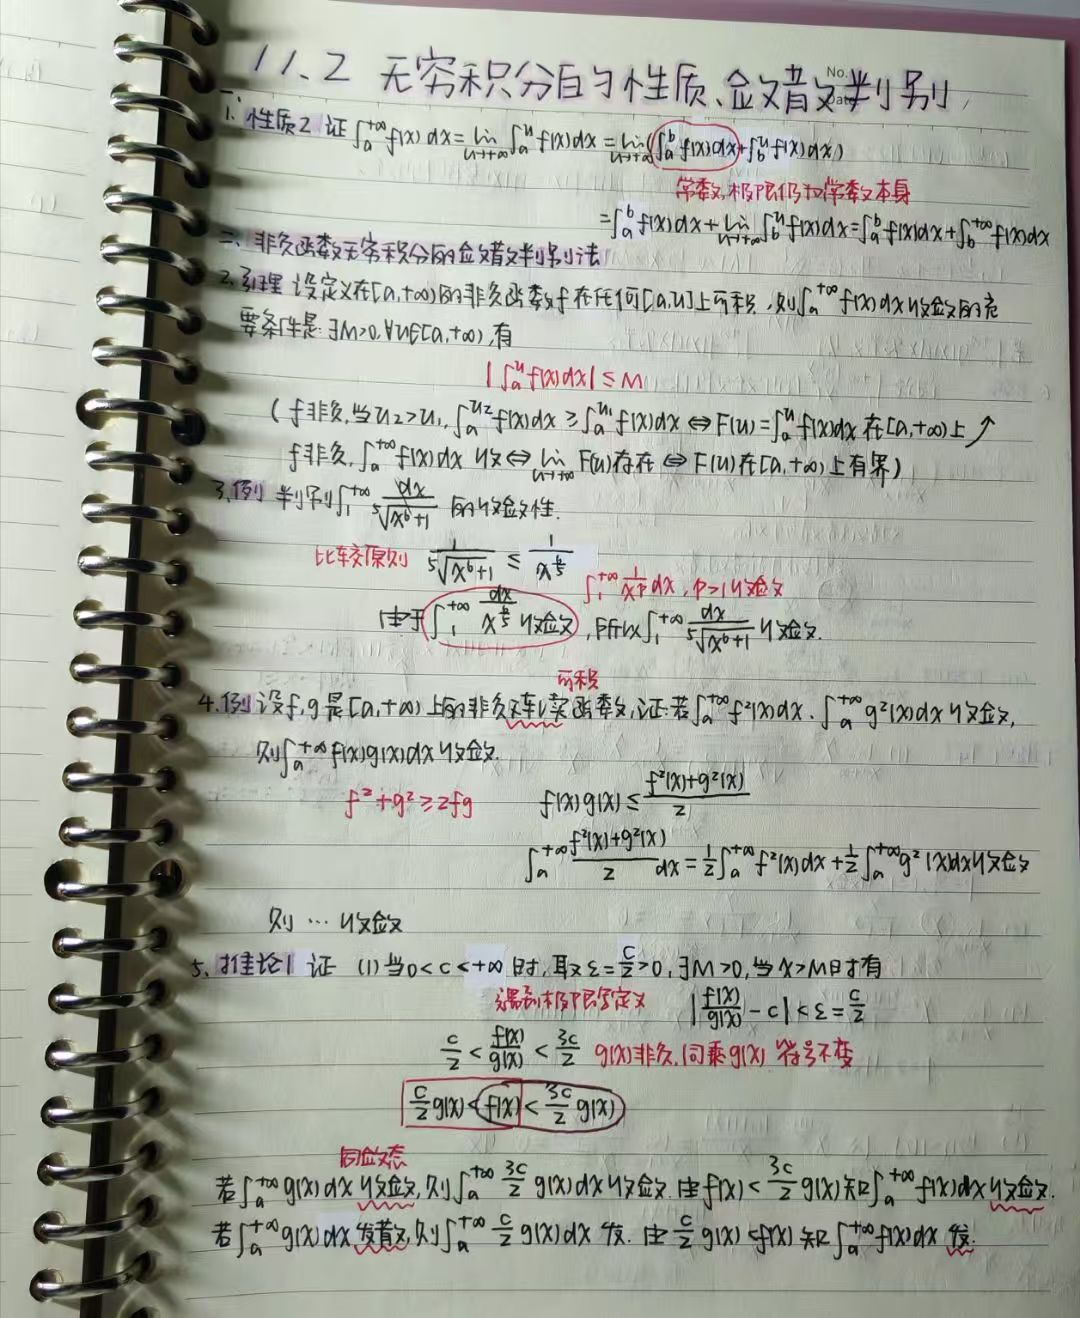 11.2 无穷积分的性质、敛散判别
No.
Date
一、
1. 性质2 证 ∫_a^{+∞} f(x)dx = lim_{u→+∞} ∫_a^u f(x)dx = lim_{u→+∞} (∫_a^b f(x)dx + ∫_b^u f(x)dx)
常数,极限仍为常数本身
= ∫_a^b f(x)dx + lim_{u→+∞} ∫_b^u f(x)dx = ∫_a^b f(x)dx + ∫_b^{+∞} f(x)dx
二、非负函数无穷积分的敛散判别法
2. 引理 设定义在[a,+∞)的非负函数f在任何[a,u]上可积,则∫_a^{+∞} f(x)dx收敛的充
要条件是:∃M>0,∀u∈[a,+∞),有
|∫_a^u f(x)dx| ≤ M
(f非负,当u₂>u₁, ∫_a^{u₂} f(x)dx ≥ ∫_a^{u₁} f(x)dx ⇔ F(u)=∫_a^u f(x)dx 在[a,+∞)上↗
f非负, ∫_a^{+∞} f(x)dx 收 ⇔ lim_{u→+∞} F(u)存在 ⇔ F(u)在[a,+∞)上有界)
3. 例 判别∫_1^{+∞} dx/⁵√(x⁶+1) 的收敛性.
比较原则 1/⁵√(x⁶+1) ≤ 1/x^{6/5}
∫_1^{+∞} 1/x^p dx, p>1收敛
由于∫_1^{+∞} dx/x^{6/5} 收敛,所以∫_1^{+∞} dx/⁵√(x⁶+1) 收敛.
可积
4. 例 设f,g是[a,+∞)上的非负连续函数,证:若∫_a^{+∞} f²(x)dx、∫_a^{+∞} g²(x)dx收敛,
则∫_a^{+∞} f(x)g(x)dx收敛.
f²+g²≥2fg f(x)g(x) ≤ (f²(x)+g²(x))/2
∫_a^{+∞} (f²(x)+g²(x))/2 dx = 1/2∫_a^{+∞} f²(x)dx + 1/2∫_a^{+∞} g²(x)dx收敛
则 … 收敛
5. 推论1 证 (1)当0<c<+∞时,取ε=c/2>0,∃M>0,当x>M时有
遇到极限写定义 |f(x)/g(x) - c| < ε = c/2
c/2 < f(x)/g(x) < 3c/2 g(x)非负,同乘g(x) 符号不变
c/2 g(x) < f(x) < 3c/2 g(x)
同敛态
若∫_a^{+∞} g(x)dx 收敛,则∫_a^{+∞} 3c/2 g(x)dx收敛.由f(x)<3c/2 g(x)知∫_a^{+∞} f(x)dx收敛.
若∫_a^{+∞} g(x)dx 发散,则∫_a^{+∞} c/2 g(x)dx 发.由c/2 g(x)<f(x)知∫_a^{+∞} f(x)dx 发.